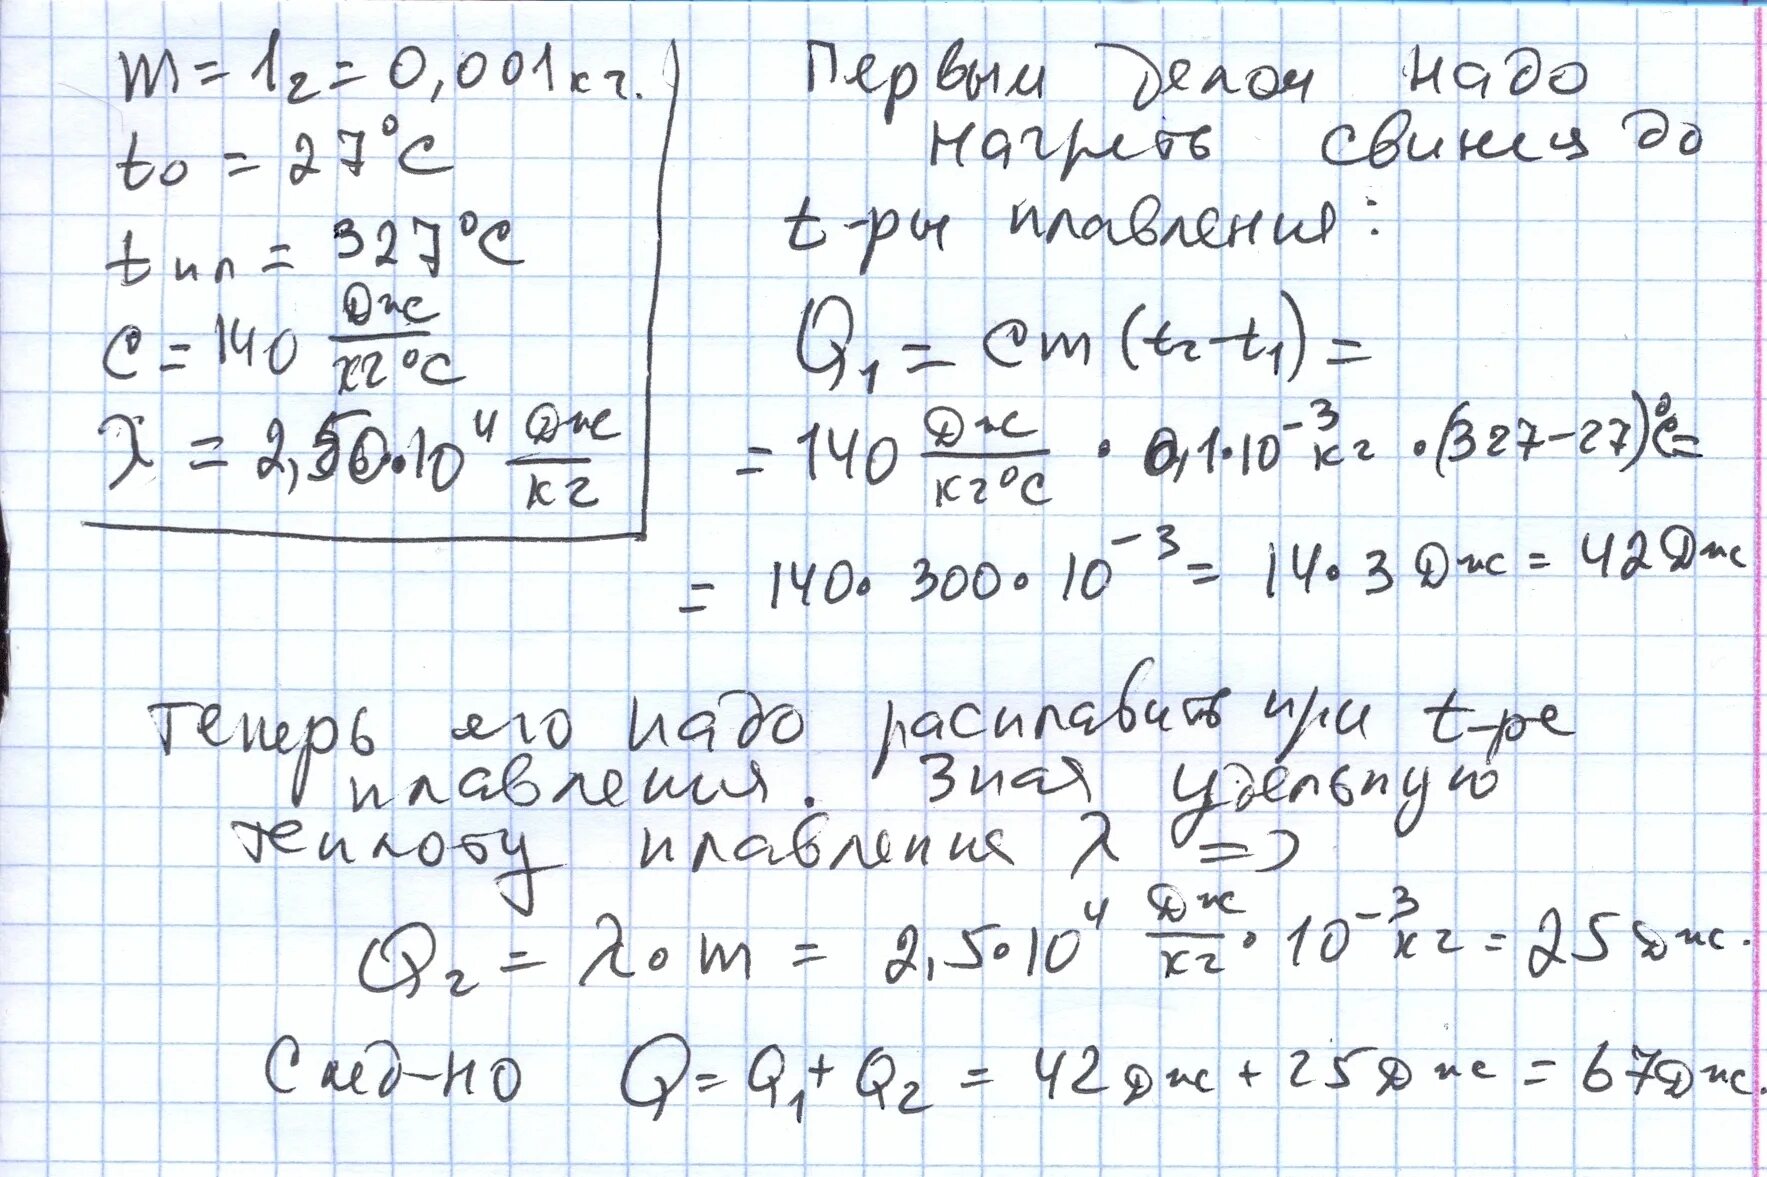 m = 1г = 0,001кг.
t₀ = 27°C
tпл = 327°C
c = 140 Дж/кг°C
λ = 2,50·10⁴ Дж/кг
Первым делом надо
нагреть свинец до
t-ры плавления:
Q₁ = cm(t₂-t₁) =
= 140 Дж/кг°C · 0,1·10⁻³кг ·(327-27)°C=
= 140· 300· 10⁻³ = 14·3 Дж = 42Дж
Теперь его надо расплавить при t-ре
плавления. Зная удельную
теплоту плавления λ =>
Q₂ = λ·m = 2,5·10⁴ Дж/кг · 10⁻³кг = 25Дж.
След-но Q = Q₁+Q₂ = 42Дж + 25Дж = 67Дж.